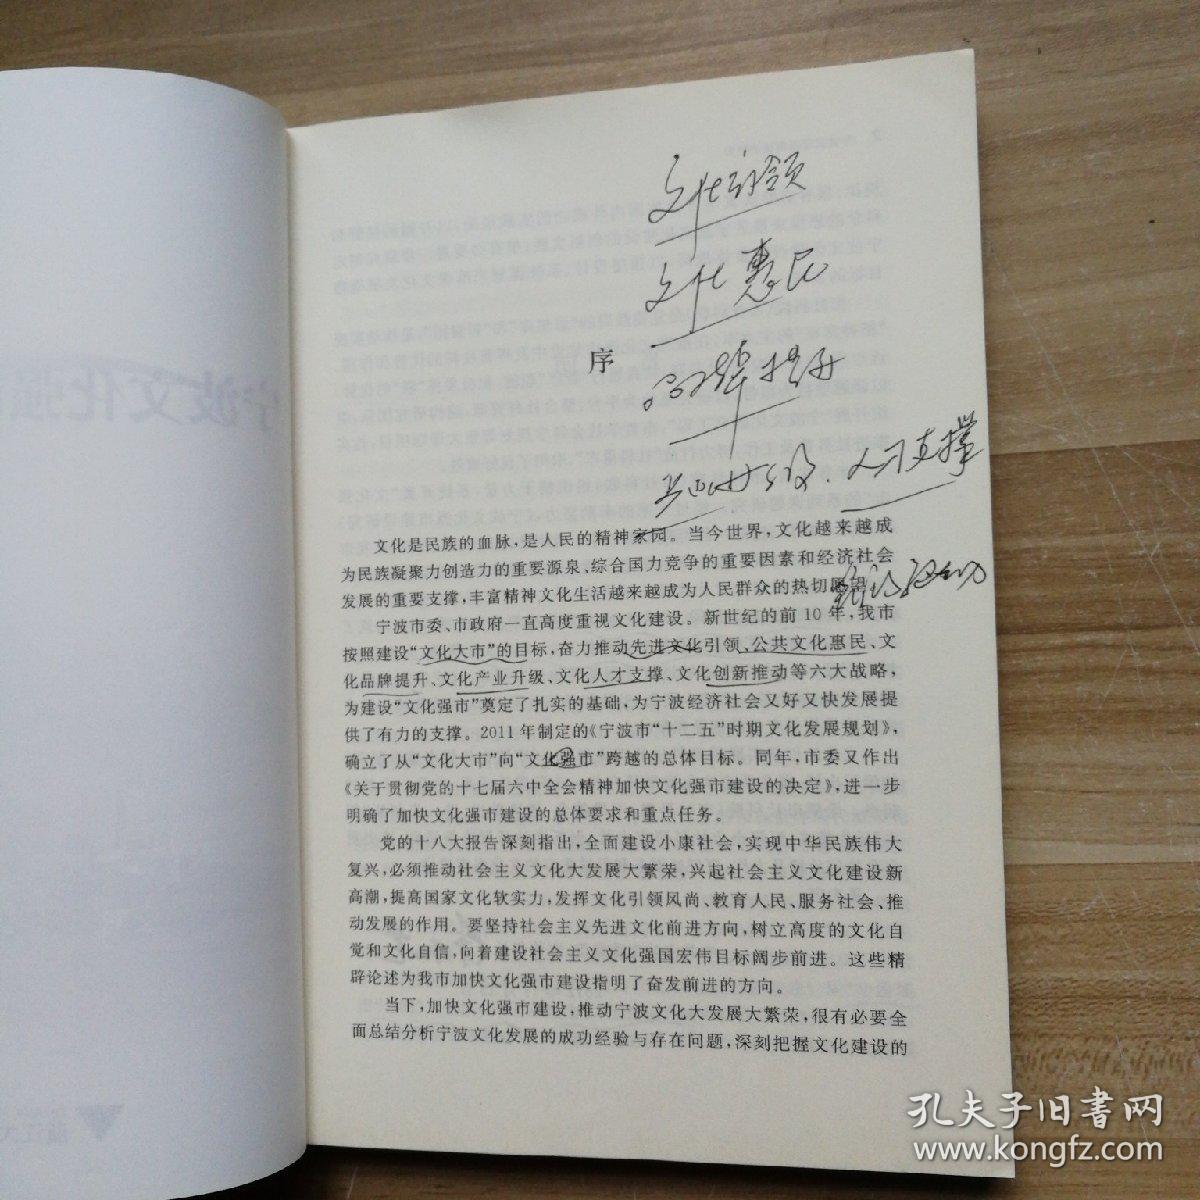 文化引领
文化惠民
品牌提升
产业升级、人才支撑
创新推动
序
文化是民族的血脉,是人民的精神家园。当今世界,文化越来越成
为民族凝聚力创造力的重要源泉、综合国力竞争的重要因素和经济社会
发展的重要支撑,丰富精神文化生活越来越成为人民群众的热切愿望。
宁波市委、市政府一直高度重视文化建设。新世纪的前10年,我市
按照建设“文化大市”的目标,奋力推动先进文化引领、公共文化惠民、文
化品牌提升、文化产业升级、文化人才支撑、文化创新推动等六大战略,
为建设“文化强市”奠定了扎实的基础,为宁波经济社会又好又快发展提
供了有力的支撑。2011年制定的《宁波市“十二五”时期文化发展规划》,
确立了从“文化大市”向“文化强市”跨越的总体目标。同年,市委又作出
《关于贯彻党的十七届六中全会精神加快文化强市建设的决定》,进一步
明确了加快文化强市建设的总体要求和重点任务。
党的十八大报告深刻指出,全面建设小康社会,实现中华民族伟大
复兴,必须推动社会主义文化大发展大繁荣,兴起社会主义文化建设新
高潮,提高国家文化软实力,发挥文化引领风尚、教育人民、服务社会、推
动发展的作用。要坚持社会主义先进文化前进方向,树立高度的文化自
觉和文化自信,向着建设社会主义文化强国宏伟目标阔步前进。这些精
辟论述为我市加快文化强市建设指明了奋发前进的方向。
当下,加快文化强市建设,推动宁波文化大发展大繁荣,很有必要全
面总结分析宁波文化发展的成功经验与存在问题,深刻把握文化建设的
宁波文化强
孔夫子旧书网
www.kongfz.com